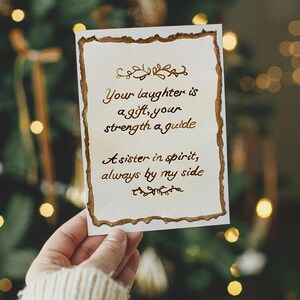 Your laughter is
a gift, your
strength a guide
A sister in spirit,
always by my side